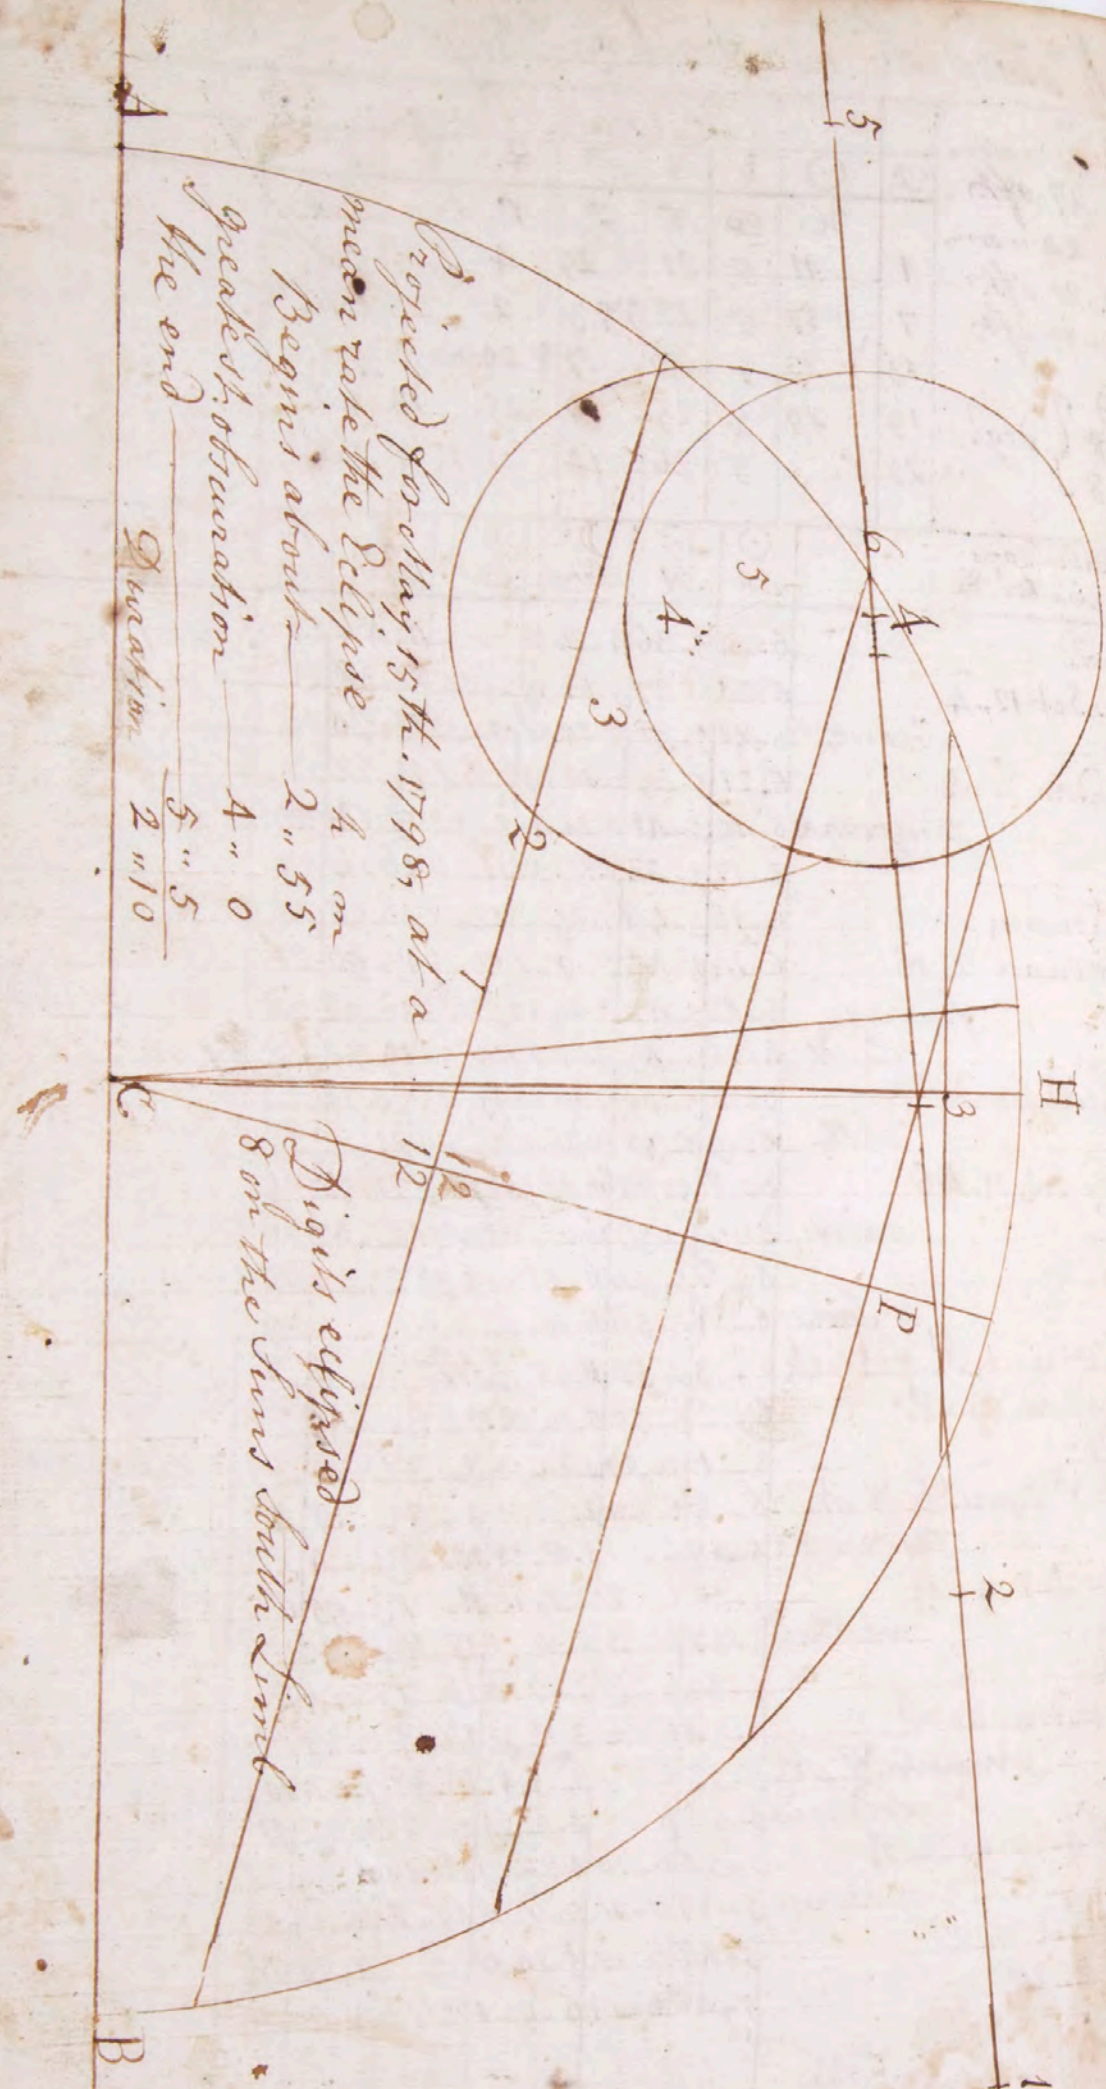 H
5 4 3 2 1
6
P
5
4
3
2
12
12
Projected for May 15th. 1798, at a
mean rate the Eclipse h m
Begins about 2 " 55
greatest obscuration 4 " 0
the end 5 " 5
Duration 2 " 10
Digits eclipsed
8 on the Suns South Limb
A C B